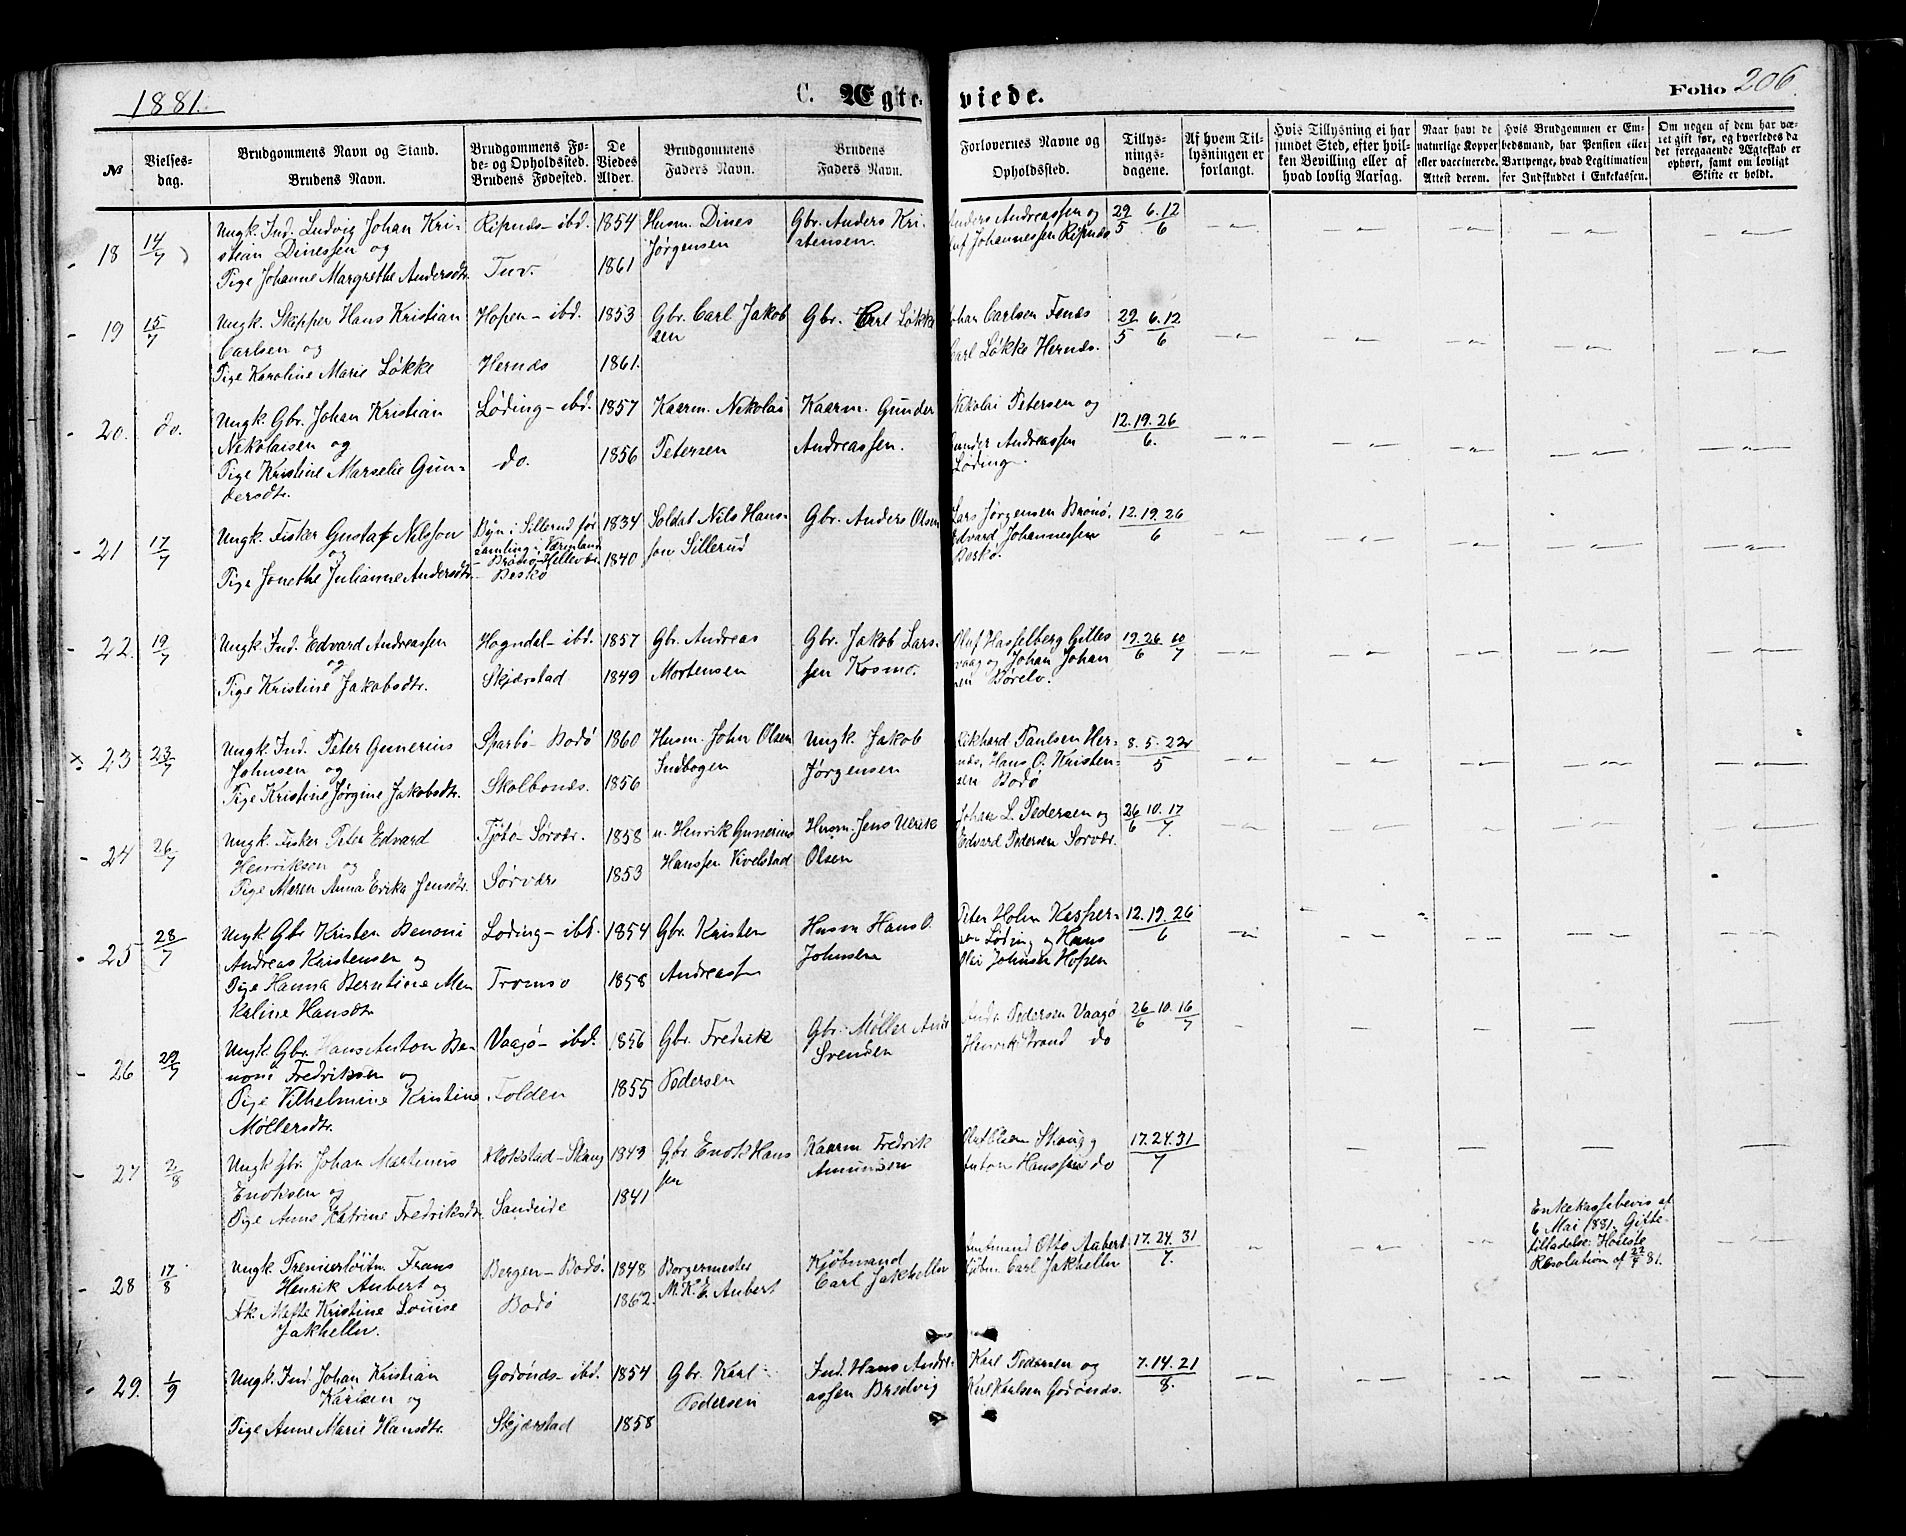 1881.
C. Ægteviede.
Folio 206.
№
Vielses-
dag.
Brudgommens Navn og Stand.
Brudens Navn.
Brudgommens Fø-
de- og Opholdssted.
Brudens Fødested.
De
Viedes
Alder.
Brudgommens
Faders Navn.
Brudens
Faders Navn.
Forlovernes Navne og
Opholdssted.
Tillys-
nings-
dagene.
Af hvem Til-
lysningen er
forlangt.
Hvis Tillysning ei har
fundet Sted, efter hvil-
ken Bevilling eller af
hvad lovlig Aarsag.
Naar havt de
naturlige Kopper
eller vaccinerede.
Attest derom.
Hvis Brudgommen er Em-
bedsmand, har Pension eller
Vartpenge, hvad Legitimation
for Indskuddet i Enkekassen.
Om nogen af dem har væ-
ret gift før, og hvorledes da
det foregaaende Ægteskab er
ophørt, samt om lovligt
Skifte er holdt.
18 14/7
Ungk. Ind. Ludvig Johan Kri-
stian Dinessen og
Pige Johanne Margrethe Andersdtr.
Ripnæs - ibd.
Tuv.
1854
1861
Husm. Dines
Jørgensen
Gbr. Anders Kri-
stensen.
Anders Andreassen og
Johannessen Ripnæs
29/5 6.12/6
19 15/7
Ungk. Skipper Hans Kristian
Carlsen og
Pige Karoline Marie Løkke
Hopen - ibd.
Hernæs
1853
1861.
Gbr. Carl Jakob
sen
Gbr. Carl Løkke
Johan Carlsen Fenæs
Carl Løkke Hernæs.
29/5 6.12/6
20. do.
Ungk. Gbr. Johan Kristian
Nikolaisen og
Pige Kristine Marselie Gun-
dersdtr.
Løding - ibd.
do.
1857
1856
Kaarm. Nikolai
Petersen
Kaarm. Gunder
Andreassen.
Nikolai Petersen og
Gunder Andreassen
Løding
12.19.26/6.
21 17/7
Ungk. Fisker Gustaf Nilsson
og
Pige Jonethe Julianne Andersdtr.
Byn i Sillerud før
samling i Værmland
Beskø
1834
1840
Soldat Nils Hans-
son Sillerud
Gbr. Anders Olsen
Lars Jørgensen Brønø.
Edvard Johannessen
Beskø.
12.19.26/6
22. 19/7
Ungk. Ind. Edvard Andreassen
og
Pige Kristine Jakobsdtr.
Hogndal - ibd.
Skjærstad
1857
1849
Gbr. Andreas
Mortensen
Gbr. Jakob Lars-
sen Kosmo.
Oluf Hasselberg Gilles
vaag og Johan Johan
sen Børelv.
19.26/6 10/7
23 23/7
Ungk. Ind. Peter Gunerius
Johnsen og
Pige Kristine Jørgine Jakobsdtr.
Sparbo - Bodø
Skolbonæs.
1860
1856
Husm. John Olsen
Indbogen
Ungk. Jakob
Jørgensen
Rikhard Paulsen Her-
næs, Hans O. Kristen-
sen Bodø
8. 5. 22/5
24 26/7
Ungk. Fisker Peter Edvard
Henriksen og
Pige Maren Anna Erika Jensdtr.
Tjøtø - Sørvær.
Sørvær
1858
1853
u. Henrik Gunerius
Hanssen Kvelstad
Husm. Jens Ulrik
Olsen
Johan L. Pedersen og
Edvard Pedersen Sørvær.
26/6 10. 17/7
25 28/7
Ungk Gbr Kristen Benoni
Andreas Kristensen og
Pige Hanna Berntine Men
kaline Hansdtr
Løding - ibd.
Tromsø
1854
1858
Gbr. Kristen
Andreassen
Husm Hans O.
Johnsen
Peter Holm Kasper-
sen Løding og Hans
Olai Johnsen Hopen
12.19.26/6
26 29/7
Ungk. Gbr. Hans Anton Be-
noni Fredriksen og
Pige Vilhelmine Kristine
Møllersdtr.
Vaagø - ibd.
Folden
1856
1855
Gbr. Fredrik
Pedersen
Gbr. Møller
Svendsen
Pedersen Vaagø
Henrik Strand do
26/6 10. 16/7
27 2/8
Ungk Gbr. Johan Martinus
Enoksen og
Pige Anne Katrine Fredriksdtr.
Klokstad - Skaug
Sandvide
1843
1841
Gbr Enok Hans
sen
Kaarm Fredrik
Amundsen
Olsen Skaug og
Anton Hanssen do
17.24.31/7
28 17/8
Ungk. Premierløitn. Frans
Henrik Aubert og
Frk. Mette Kristine Louise
Jakhelln.
Bergen - Bodø.
Bodø
1848
1862.
Borgermester
M. K. E. Aubert
Kjøbmand
Carl Jakhelln
Amtmand Otto Aubert
Kjøbm. Carl Jakhelln
17.24.31/7.
Enkekassebevis af
6 Mai 1881. Gifte-
tilladelse: Høieste
Resolution af
29. 1/9
Ungk. Ind. Johan Kristian
Karlsen og
Pige Anne Marie Hansdtr.
Godønæs - ibd.
Skjærstad
1854
1858
Gbr. Karl
Pedersen
Ind. Hans Andre-
assen Bredvig
Karl Pedersen og
Karl Karlsen Godønæs.
7.14.21/8.